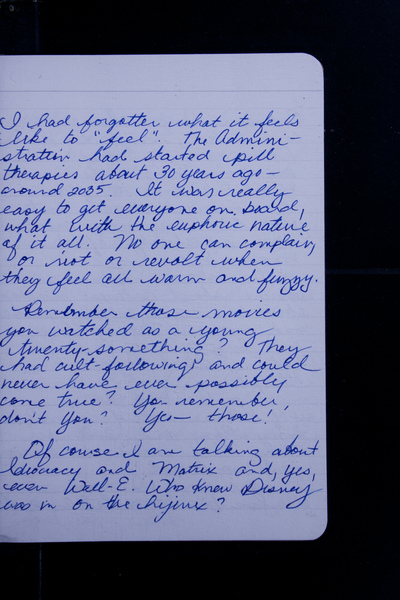 I had forgotten what it feels
like to "feel". The Admini-
stration had started pill
therapies about 30 years ago -
around 2035. It was really
easy to get everyone on board,
what with the euphoric nature
of it all. No one can complain,
or riot or revolt when
they feel all warm and fuzzy.
Remember those movies
you watched as a young
twenty-something? They
had cult-followings and could
never have ever possibly
come true? You remember,
don't you? Yes those!
Of course I am talking about
Idiocracy and Matrix and, yes,
even Wall-E. Who knew Disney
was in on the hijinx?